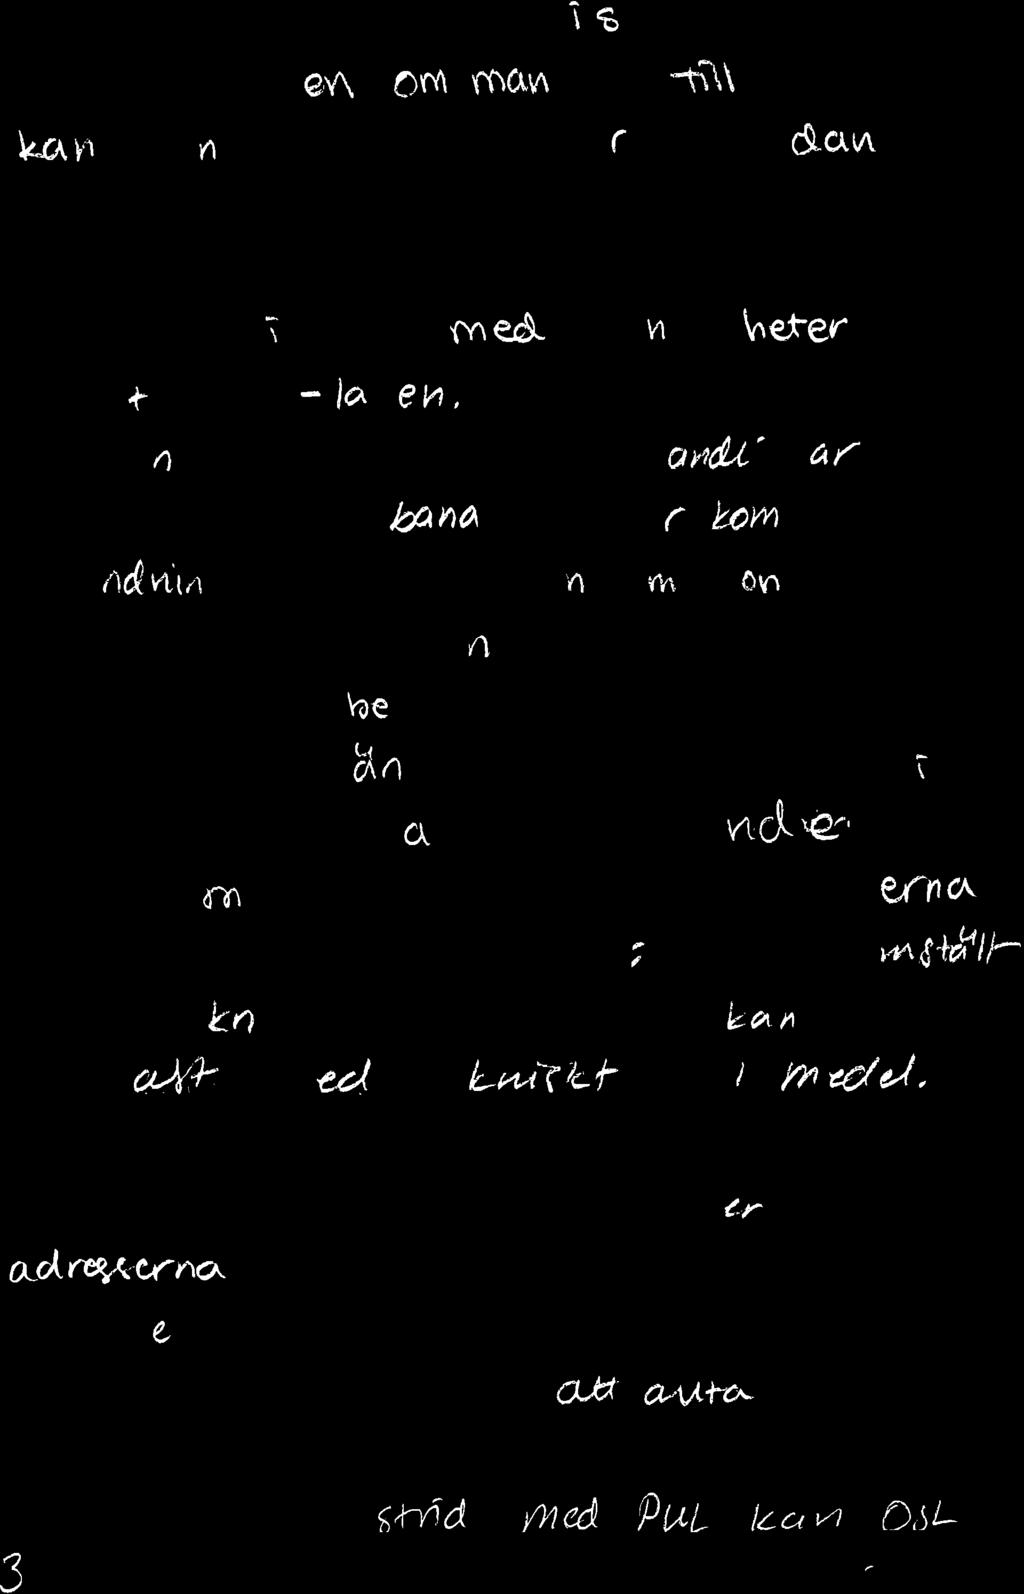 is
en om man till
kan n r dan
i med n heter
t - la en.
n andl ar
bana r kom
ndnin n m on
n
be
än i
a nd e
m erna
: mställt
kn kan
ast ed kniskt i medel.
er
adresserna
e
att auta
strid med PUL kan OSL
3